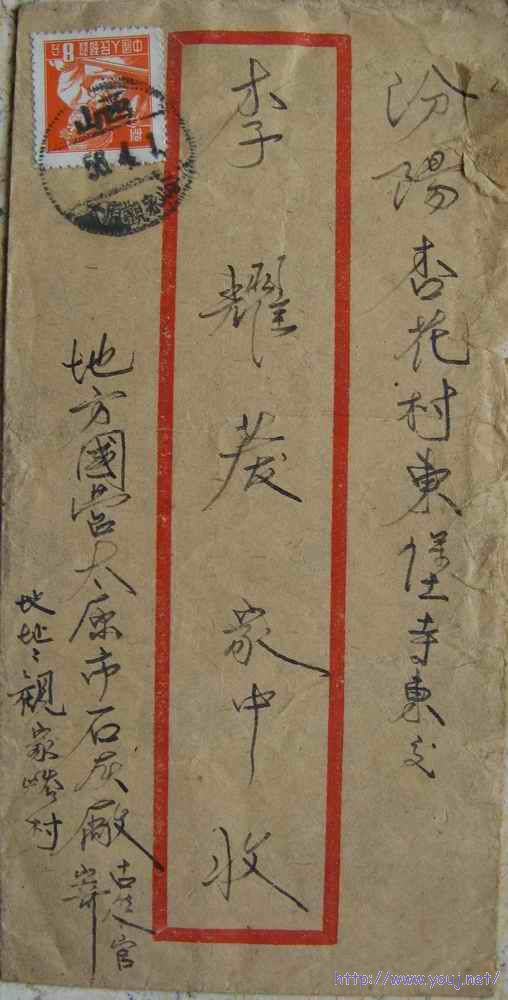 汾陽杏花村東堡寺東交
李耀発家中收
地方國营太原市石灰廠
地址:觀家峪村
中國人民郵政
8分
山西
58.4.1
http://www.youj.net/